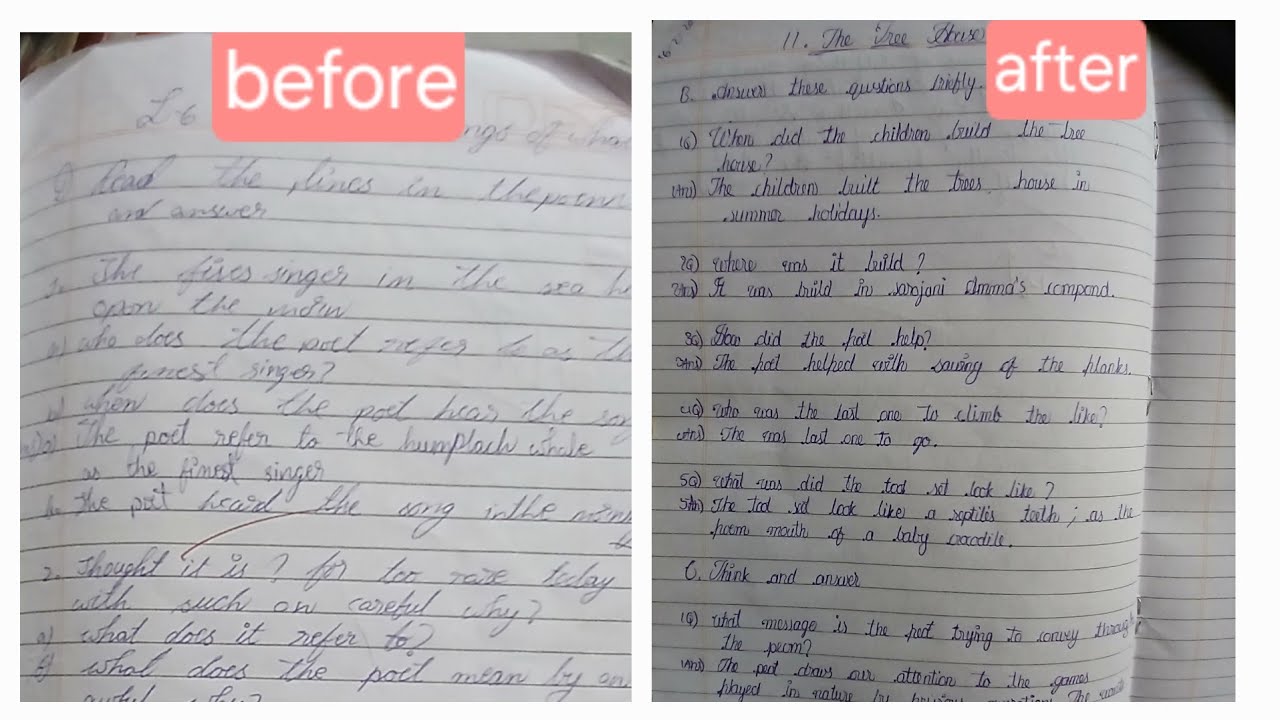 before
L-6 ngs of
Q) Read the lines in the poem
and answer
1. The fines singer in the sea he
opon the
a) who does the poet refer to as th
finest singer?
b) when does the poet hear the son
a) The poet refer to the humpbach whale
as the finest singer
b. the poet heard the song in the
2. Thought it is ? for too rare today
with such an careful why?
a) what does it refer to?
b) what does the poet mean by an
why?
after
11. The Tree House
B. Answer these qustions briefly.
1Q) When did the children build the tree
house?
1Ans) The children built the trees house in
summer holidays.
2Q) where was it build?
2Ans) It was build in sarojani Amma's compond.
3Q) How did the poet help?
3Ans) The poet helped with sawing of the planks.
4Q) Who was the last one to climb the like?
4Ans) The was last one to go.
5Q) what was did the tod set look like?
5Ans) The tod set look like a reptilis teeth; as the
mouth of a baby crocodile.
C. Think and answer
1Q) what message is the poet trying to convey through
the poem?
1Ans) The poet draws our attention to the games
played in nature by The